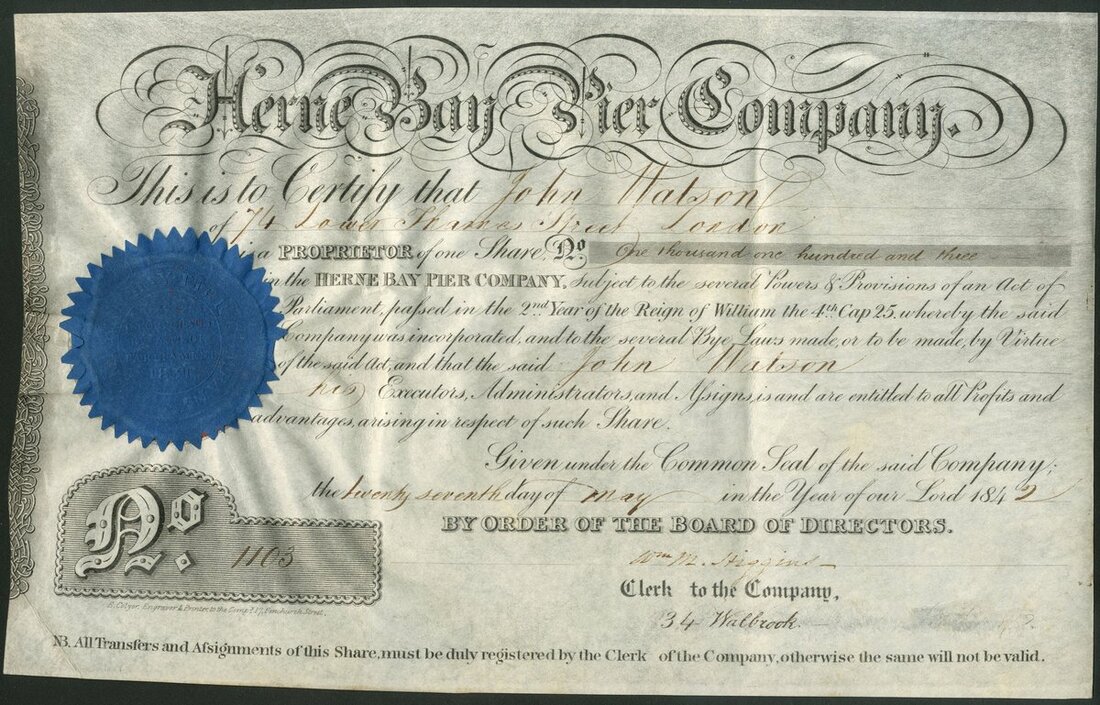 Herne Bay Pier Company.
This is to Certify that John Watson
of 74 Lower Thames Street London
is a PROPRIETOR of one Share, No One thousand one hundred and three
in the HERNE BAY PIER COMPANY, Subject to the several Powers & Provisions of an Act of
Parliament, passed in the 2nd Year of the Reign of William the 4th Cap 25, whereby the said
Company was incorporated, and to the several Bye Laws made, or to be made, by Virtue
of the said Act, and that the said John Watson
his Executors, Administrators, and Assigns, is and are entitled to all Profits and
advantages, arising in respect of such Share.
Given under the Common Seal of the said Company;
the twenty seventh day of may in the Year of our Lord 1842
BY ORDER OF THE BOARD OF DIRECTORS.
Wm M. Higgins
Clerk to the Company,
34 Walbrook.
No. 1103
Engraver & Printer to the Compy. 17, Fenchurch Street.
NB. All Transfers and Assignments of this Share, must be duly registered by the Clerk of the Company, otherwise the same will not be valid.